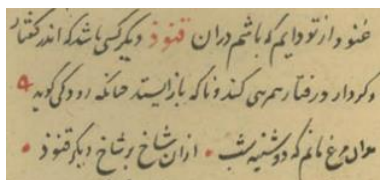 غنود از تو دایم که باشم دران فنوذ دیگر کسی باشد که اندر گفتار
و کردار و رفتار سرسری کند و ناکه بازایستد چنانکه رودکی گوید
بدان مرغ مانم که دوشینه شب از ان شاخ بر شاخ دیگر فنوذ